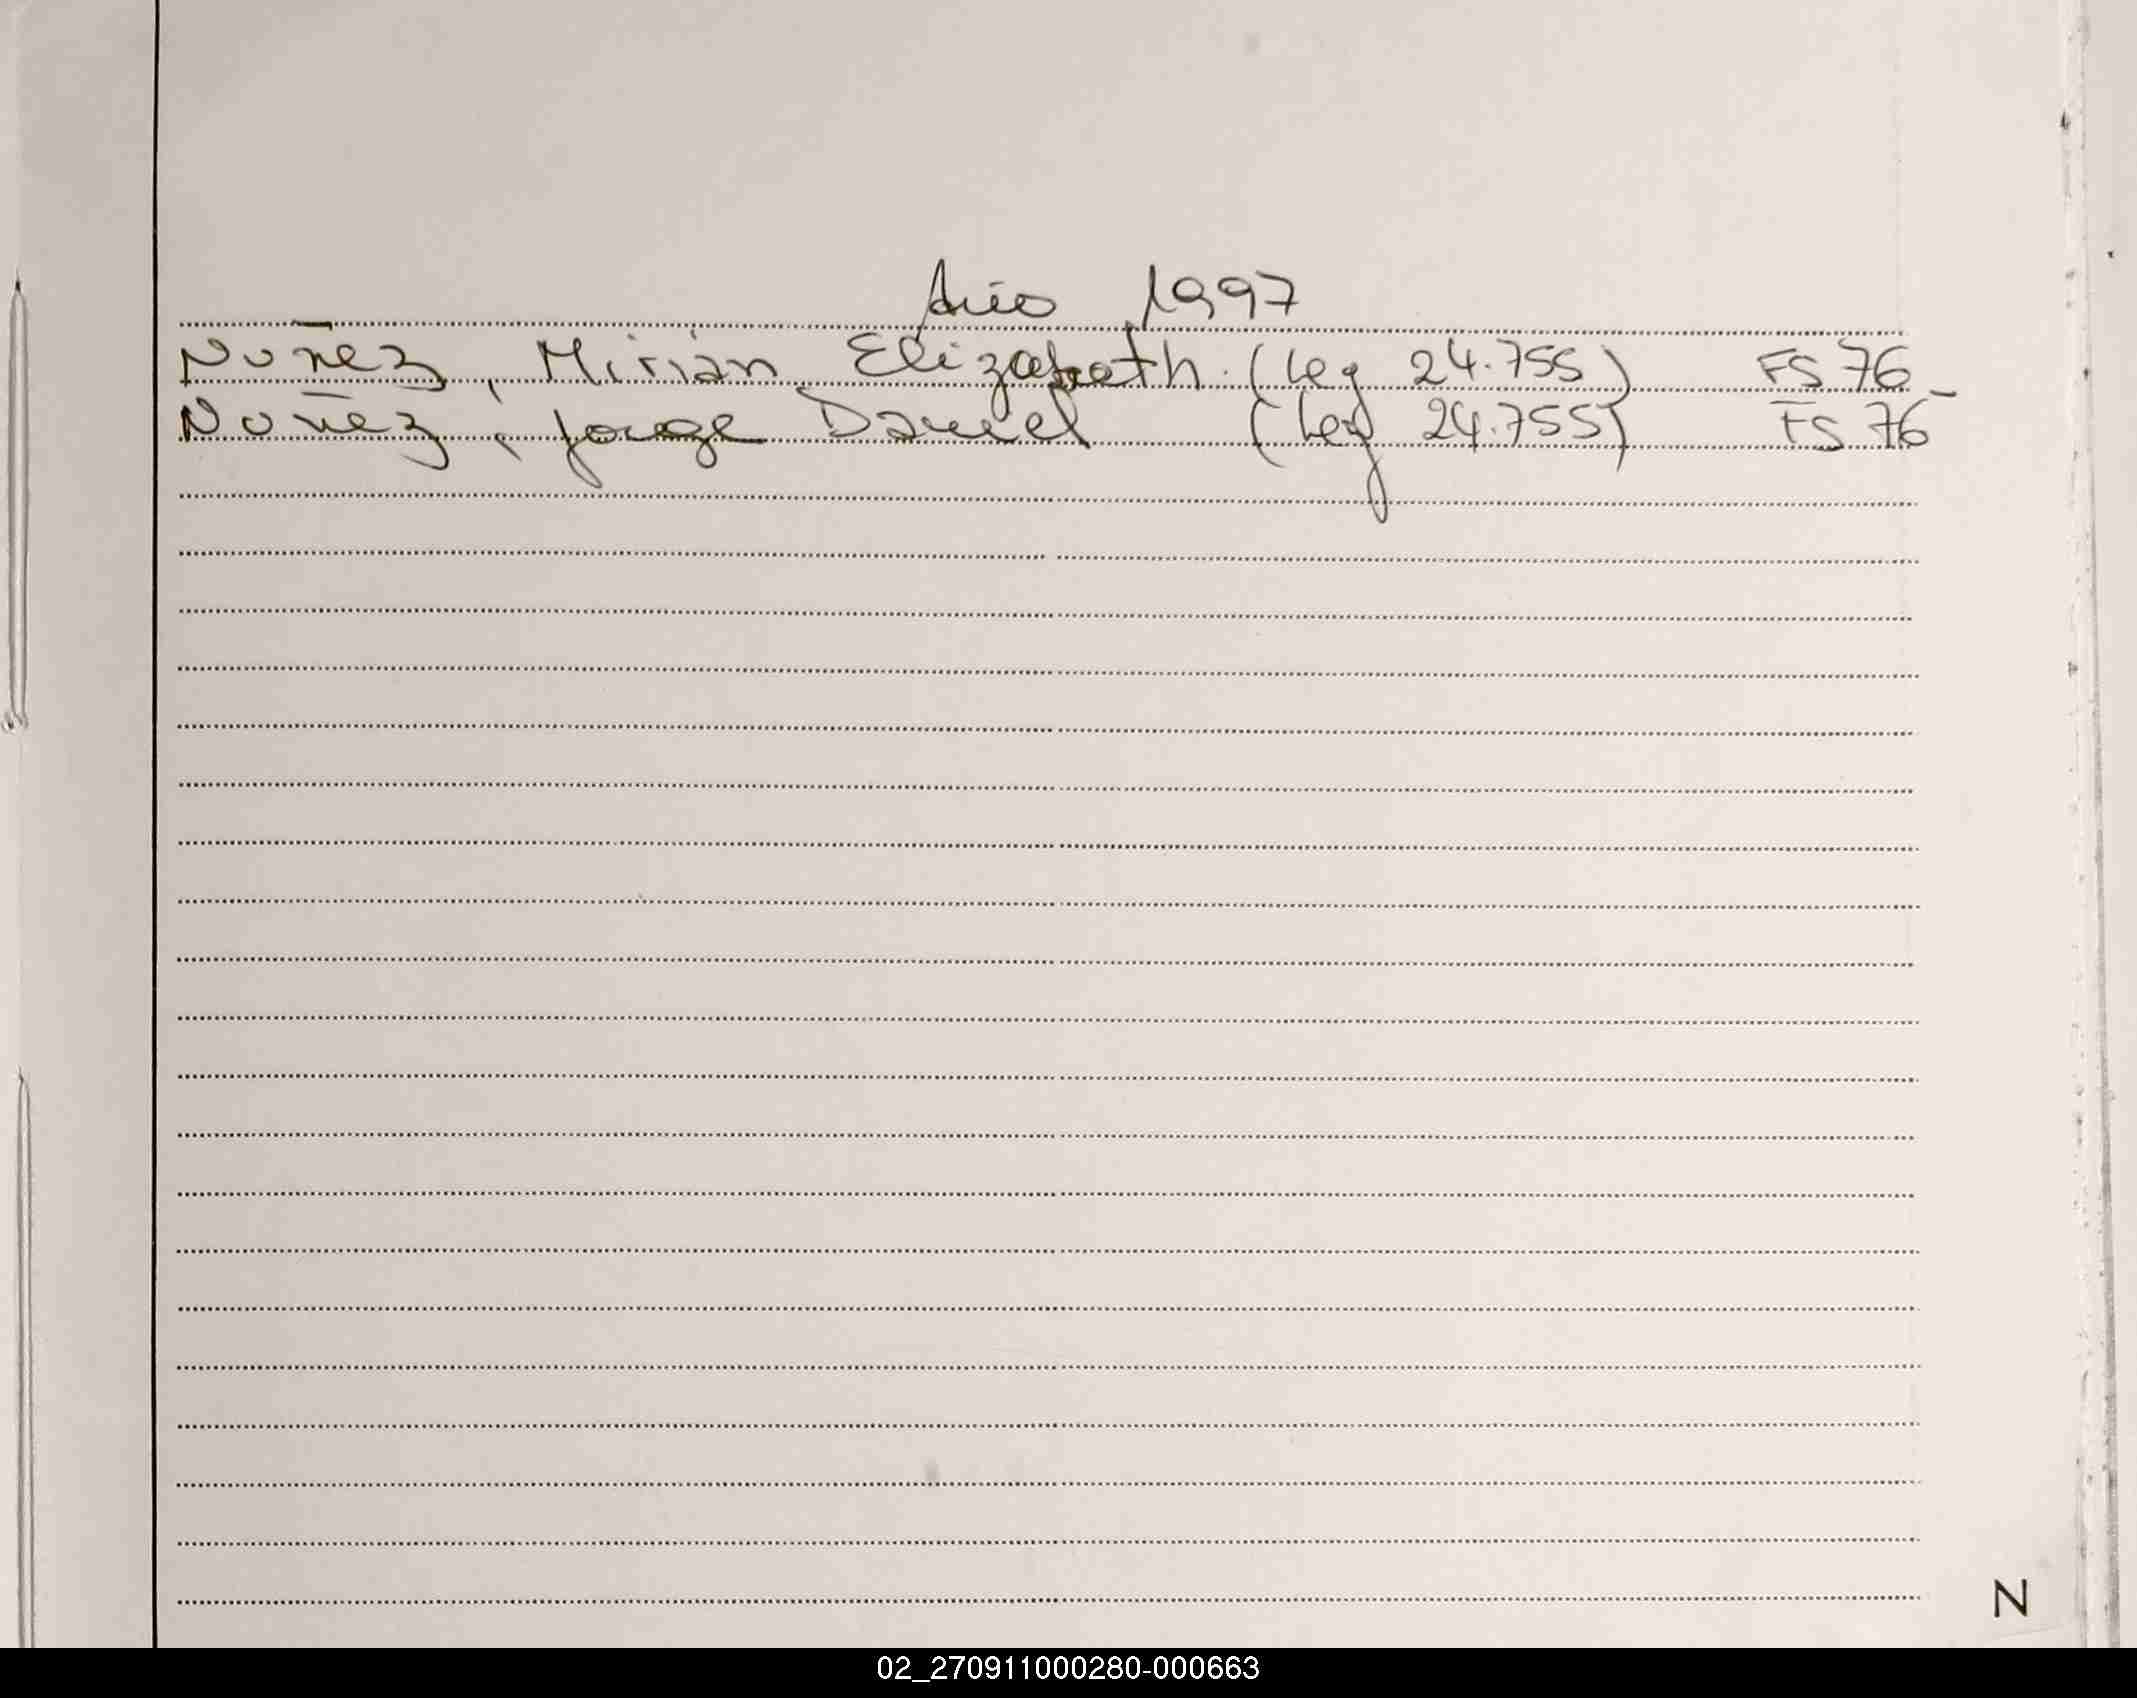 Año 1997
Nuñez, Mirian Elizabeth. (Leg 24.755) FS 76-
Nuñez, Jorge Daniel (Leg 24.755) FS 76
N
02_270911000280-000663